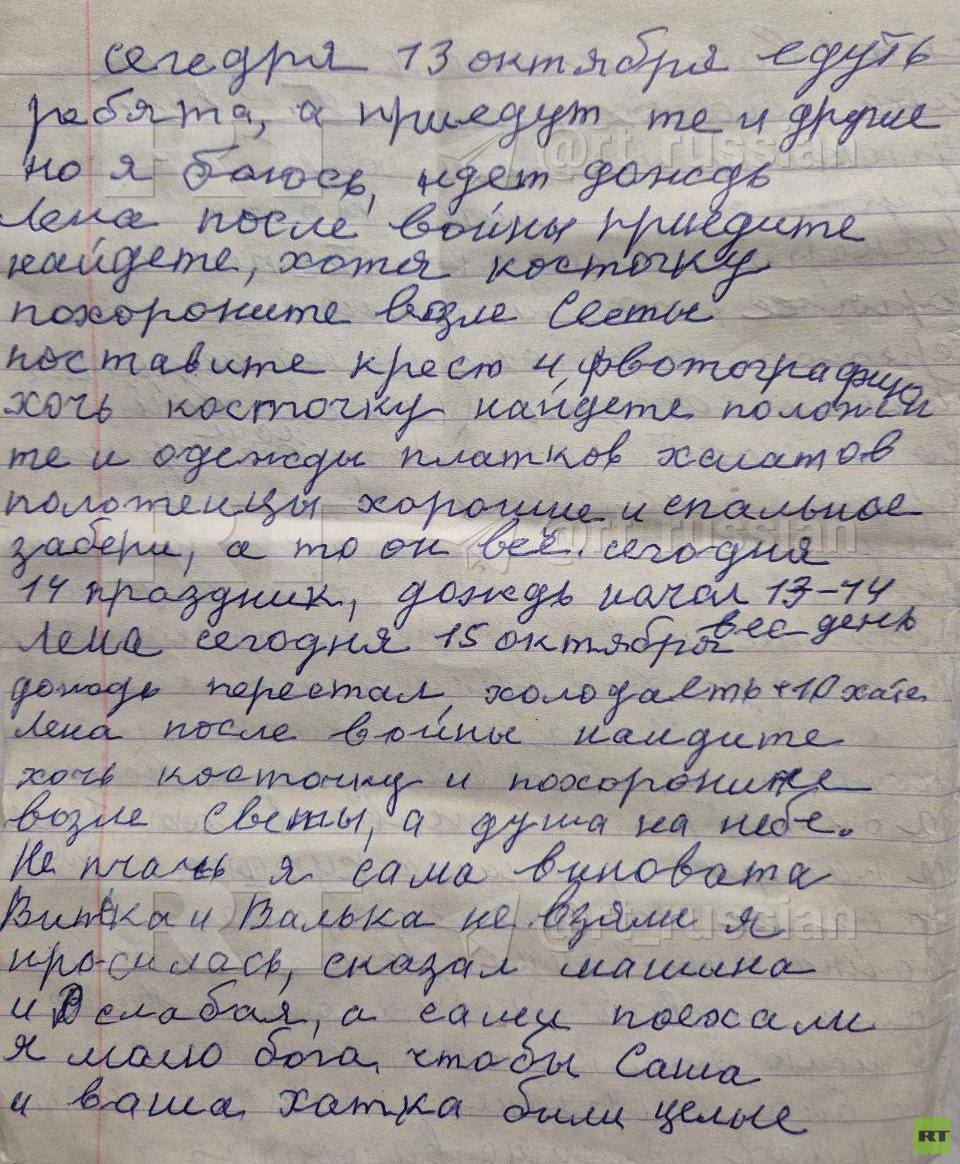 сегедря 13 октября едуть
ребята, а приедут те и другие
но я боюсь, идет дождь
Лена после войны приедите
найдете, хотя косточку
похороните возле Светы
поставите крест и фвотографию
хочь косточку найдете положи
те и одежды платков халатов
полотенцы хорошие и спальное
забери, а то он все. сегодня
14 праздник, дождь начал 13-14
Лена сегодня 15 октября вес день
дождь перестал, холодаеть +10 хате
Лена после войны наидите
хочь косточку и похороните
возле Светы, а душа на небе.
Не плачь я сама виновата
Витека и Валька не взяли я
просилась, сказал машина
и слабая, а сами поехали
я малю бога чтобы Саша
и ваша хатка били целые
@rt_russian
@rt_russian
@rt_russian
RT